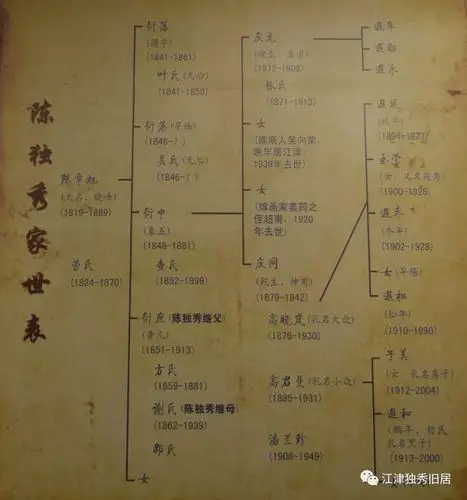 陈独秀家世表
陈章旭
(太占、晓峰)
(1819-1889)
劳氏
(1824-1870)
衍藩
(1841-1861)
叶氏(无后)
(1841-1858)
衍藻(早殇)
(1846-?)
吴氏(无后)
(1846-?)
衍中
(象五)
(1848-1881)
查氏
(1852-1899)
衍庶(陈独秀继父)
(昔凡)
(1851-1913)
方氏
(1859-1881)
谢氏(陈独秀继母)
(1862-1939)
邵氏
女
庆元
(1872-1909)
张氏
(1871-1913)
女
(嫁商人吴向荣,
晚年居江津,
1939年去世)
女
(嫁画家姜筠之
侄超甫,1920
年去世)
庆同
(乾生、仲甫)
(1879-1942)
高晓岚(乳名大众)
(1876-1930)
高君曼(乳名小众)
(1885-1931)
潘兰珍
(1908-1949)
遐年
遐勋
遐永
遐延
(延年)
(1898-1927)
玉莹
(女,又名筱秀)
(1900-1928)
遐乔
(乔年)
(1902-1928)
女(早殇)
遐松
(松年)
(1910-1990)
子美
(女,乳名喜子)
(1912-2004)
遐和
(鹤年、哲民
乳名黑子)
(1913-2000)
江津独秀旧居